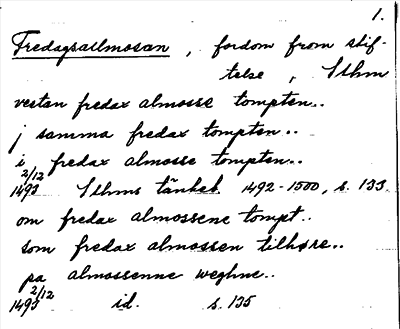 1.
Fredagsallmosan, fordom from stif-
telse, Sthm
vestan fredax almosse tompten..
j samma fredax tompten..
i fredax almosse tompten..
2/12
1493 Sthms tänkeb. 1492-1500, s. 133
om fredax almossene tompt..
som fredax almossen tilhøre..
pa almossenne weghne..
2/12
1493 id. s. 135